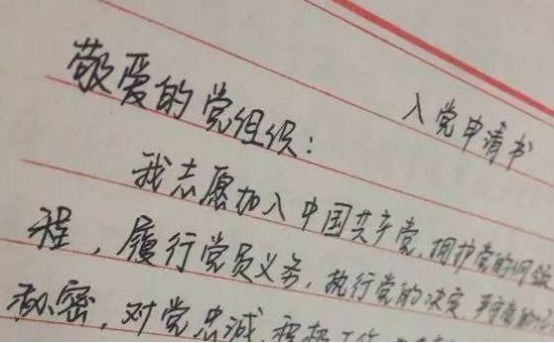 入党申请书
敬爱的党组织:
我志愿加入中国共产党,拥护党的纲领
程,履行党员义务,执行党的决定
秘密,对党忠诚,积极工作